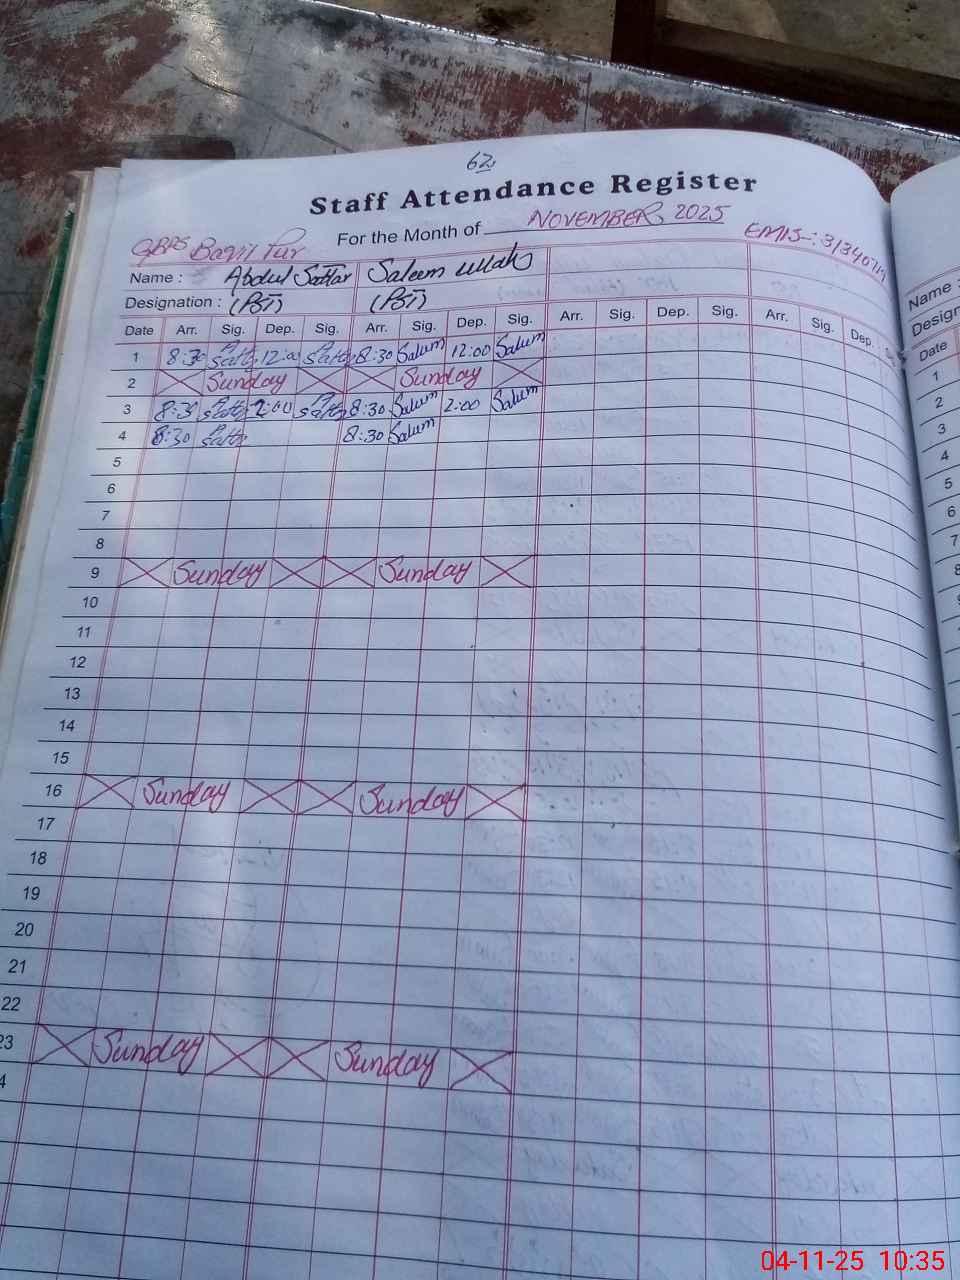 62
Staff Attendance Register
For the Month of NOVEMBER, 2025
GBPS Bagil Pur EMIS-:
Name : Abdul Sattar Saleem ullah
Designation : (PST) (PST)
Date Arr. Sig. Dep. Sig. Arr. Sig. Dep. Sig. Arr. Sig. Dep. Sig. Arr. Sig. Dep.
1 8:30 Sattr 12:00 Sattr 8:30 Salum 12:00 Salum
2 Sunday Sunday
3 8:30 Sattr 2:00 Sattr 8:30 Salum 2:00 Salum
4 8:30 Sattr 8:30 Salum
5
6
7
8
9 Sunday Sunday
10
11
12
13
14
15
16 Sunday Sunday
17
18
19
20
21
22
23 Sunday Sunday
4
Name :
Design
Date
1
2
3
4
5
6
7
8
10
11
12
13
04-11-25 10:35